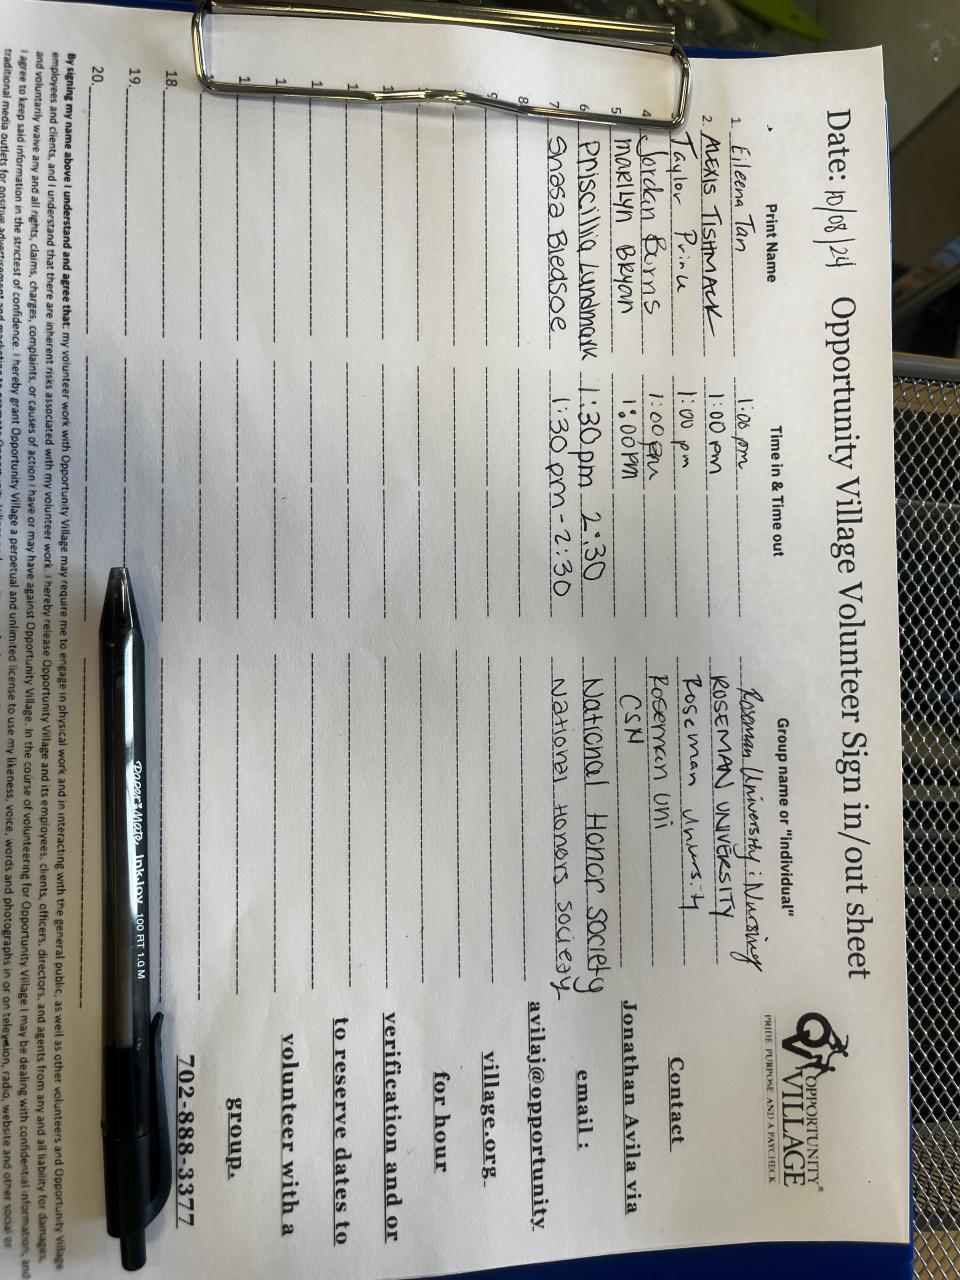 Date: 10/08/24 Opportunity Village Volunteer Sign in/out sheet
OPPORTUNITY
VILLAGE®
PRIDE PURPOSE AND A PAYCHECK
Print Name Time in & Time out Group name or "individual"
1. Eileena Tan 1:00 pm Roseman University: Nursing
2. ALEXIS TISHMACK 1:00 PM ROSEMAN UNIVERSITY
Taylor Prince 1:00 pm Roseman University
4 Jordan Burns 1:00 pm Roseman Uni
5 MARILYN BRYAN 1:00PM CSN
6 Priscillia Lundmark 1:30pm 2:30 National Honor Society
7 Snasa Bledsoe 1:30 pm - 2:30 National Honors Society
8
9
1
1
1
1
1
18.
19.
20.
Contact
Jonathan Avila via
email :
avilaj@opportunity
village.org
for hour
verification and or
to reserve dates to
volunteer with a
group.
702-888-3377
By signing my name above I understand and agree that: my volunteer work with Opportunity Village may require me to engage in physical work and in interacting with the general public, as well as other volunteers and Opportunity Village
employees and clients, and I understand that there are inherent risks associated with my volunteer work. I hereby release Opportunity Village and its employees, clients, officers, directors, and agents from any and all liability for damages,
and voluntarily waive any and all rights, claims, charges, complaints, or causes of action I have or may have against Opportunity Village. In the course of volunteering for Opportunity Village I may be dealing with confidential information, and
I agree to keep said information in the strictest of confidence. I hereby grant Opportunity Village a perpetual and unlimited license to use my likeness, voice, words and photographs in or on television, radio, website and other social or
traditional media outlets for positive advertisement and marketing to promote
Paper:Mate InkJoy 100 RT 1.0 M